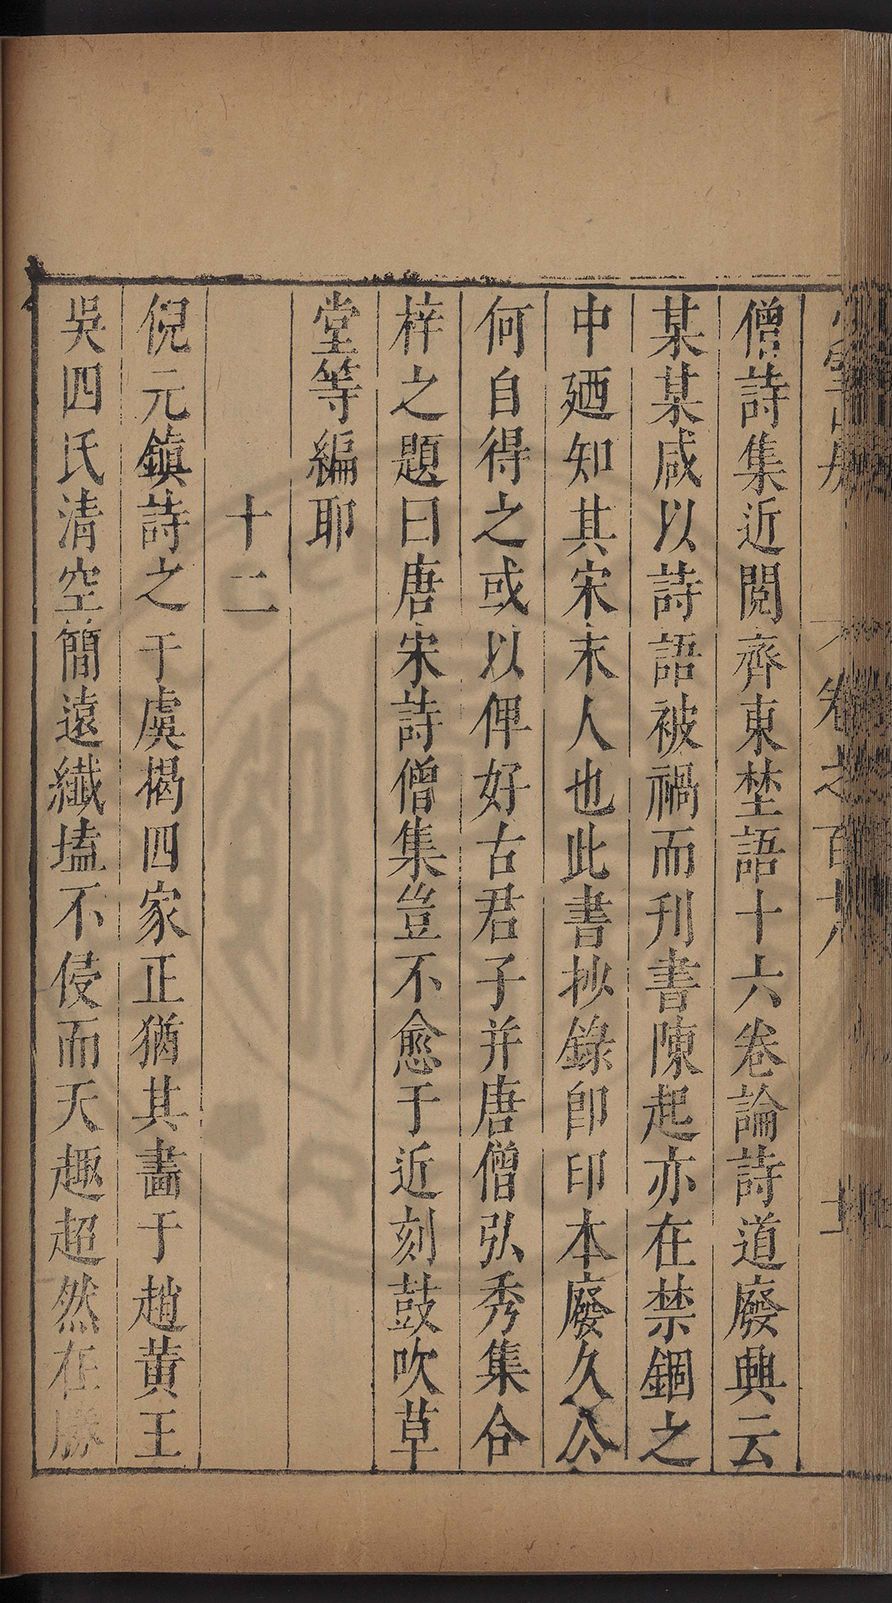 卷之百十八
僧詩集近閱齊東埜語十六卷論詩道廢興云
某某咸以詩語被禍而刋書陳起亦在禁錮之
中廼知其宋末人也此書抄錄卽印本廢久公
何自得之或以俾好古君子并唐僧弘秀集合
梓之題曰唐宋詩僧集豈不愈于近刻鼓吹草
堂等編耶
十二
倪元鎮詩之于虞楊四家正猶其畵于趙黃王
吳四氏清空簡遠纖壒不侵而天趣超然在勝